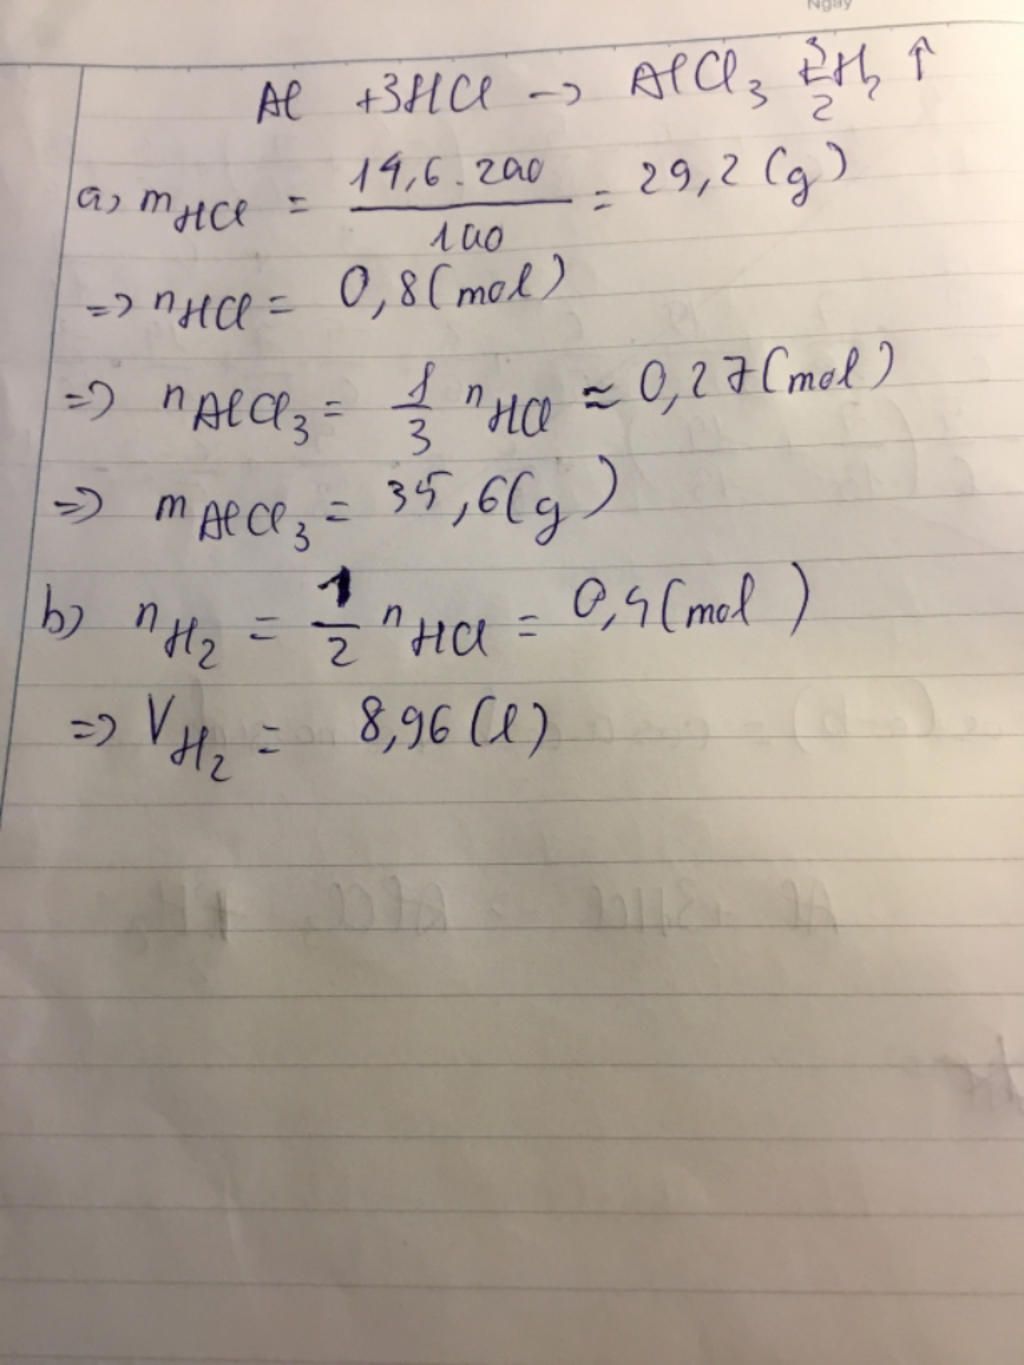 Ngày
Al + 3HCl → AlCl₃ + 3/2 H₂ ↑
a, m HCl = 14,6 . 200 / 100 = 29,2 (g)
=> n HCl = 0,8 (mol)
=> n AlCl₃ = 1/3 n HCl ≈ 0,27 (mol)
=> m AlCl₃ = 35,6 (g)
b) n H₂ = 1/2 n HCl = 0,4 (mol)
=> V H₂ = 8,96 (l)